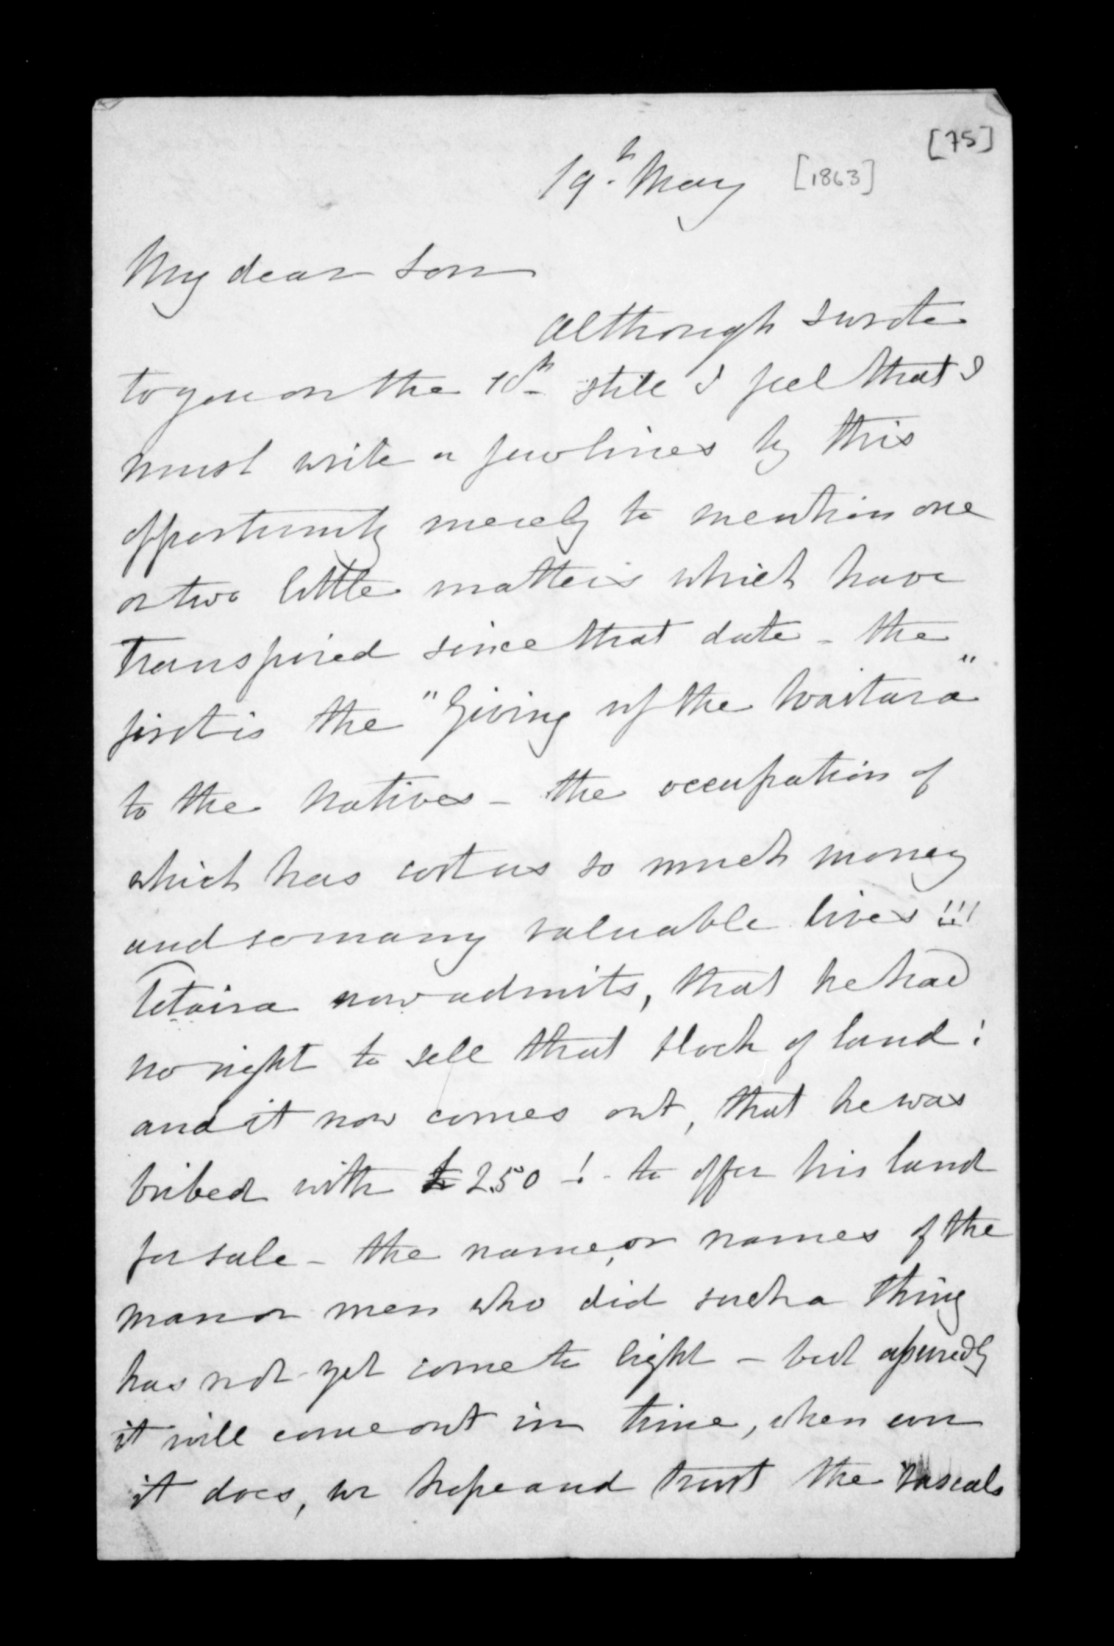 [75]
19th May [1863]
My dear Son
Although I wrote
to you on the 10th still I feel that I
must write a few lines by this
opportunity merely to mention one
or two little matters which have
transpired since that date - the
first is the "Giving up the Waitara"
to the Natives - the occupation of
which has cost us so much money
and so many valuable lives !!!
Tetaira now admits, that he had
no right to sell that block of land !
and it now comes out, that he was
bribed with £250 - ! - to offer his land
for sale - the name, or names of the
man or men who did such a thing
has not yet come to light - but assuredly
it will come out in time, when ever
it does, we hope and trust the rascals